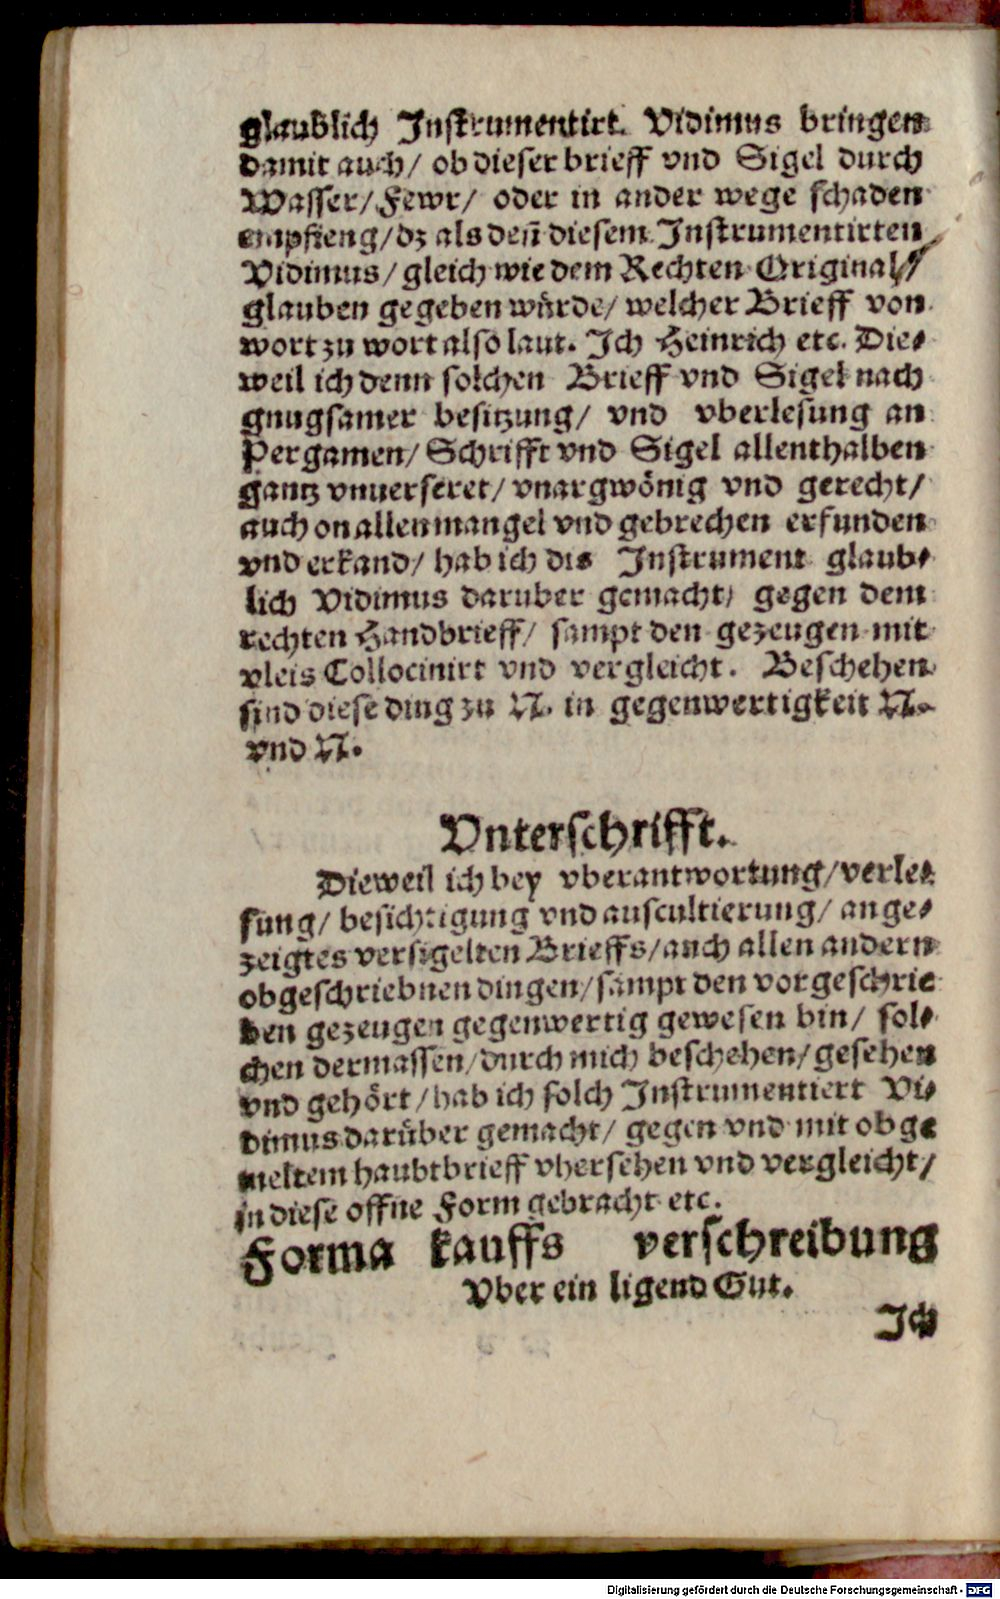 glaublich Instrumentirt. Vidimus bringen
damit auch/ ob dieser brieff vnd Sigel durch
Wasser/ Fewr/ oder in ander wege schaden
empfieng/ dz als deñ diesem Instrumentirten
Vidimus/ gleich wie dem Rechten Original/
glauben gegeben würde/ welcher Brieff von
wort zu wort also laut. Ich Heinrich etc. Die⸗
weil ich denn solchen Brieff vnd Sigel nach
gnugsamer besitzung/ vnd vberlesung an
Pergamen/ Schrifft vnd Sigel allenthalben
gantz vnuerseret/ vnargwönig vnd gerecht/
auch on allen mangel vnd gebrechen erfunden
vnd erkand/ hab ich dis Instrument glaub⸗
lich Vidimus daruber gemacht/ gegen dem
rechten Handbrieff/ sampt den gezeugen mit
vleis Collocinirt vnd vergleicht. Beschehen
sind diese ding zu N. in gegenwertigkeit N.
vnd N.
Vnterschrifft.
Dieweil ich bey vberantwortung/ verle⸗
sung/ besichtigung vnd auscultierung/ ange⸗
zeigtes versigelten Brieffs/ auch allen andern
obgeschriebnen dingen/ sampt den vorgeschrie
ben gezeugen gegenwertig gewesen bin/ sol⸗
chen dermassen/ durch mich beschehen/ gesehen
vnd gehört/ hab ich solch Instrumentiert Vi⸗
dimus darüber gemacht/ gegen vnd mit obge
meltem haubtbrieff vbersehen vnd vergleicht/
in diese offne Form gebracht etc.
Forma kauffs verschreibung
Vber ein ligend Gut.
Ich
Digitalisierung gefördert durch die Deutsche Forschungsgemeinschaft - DFG